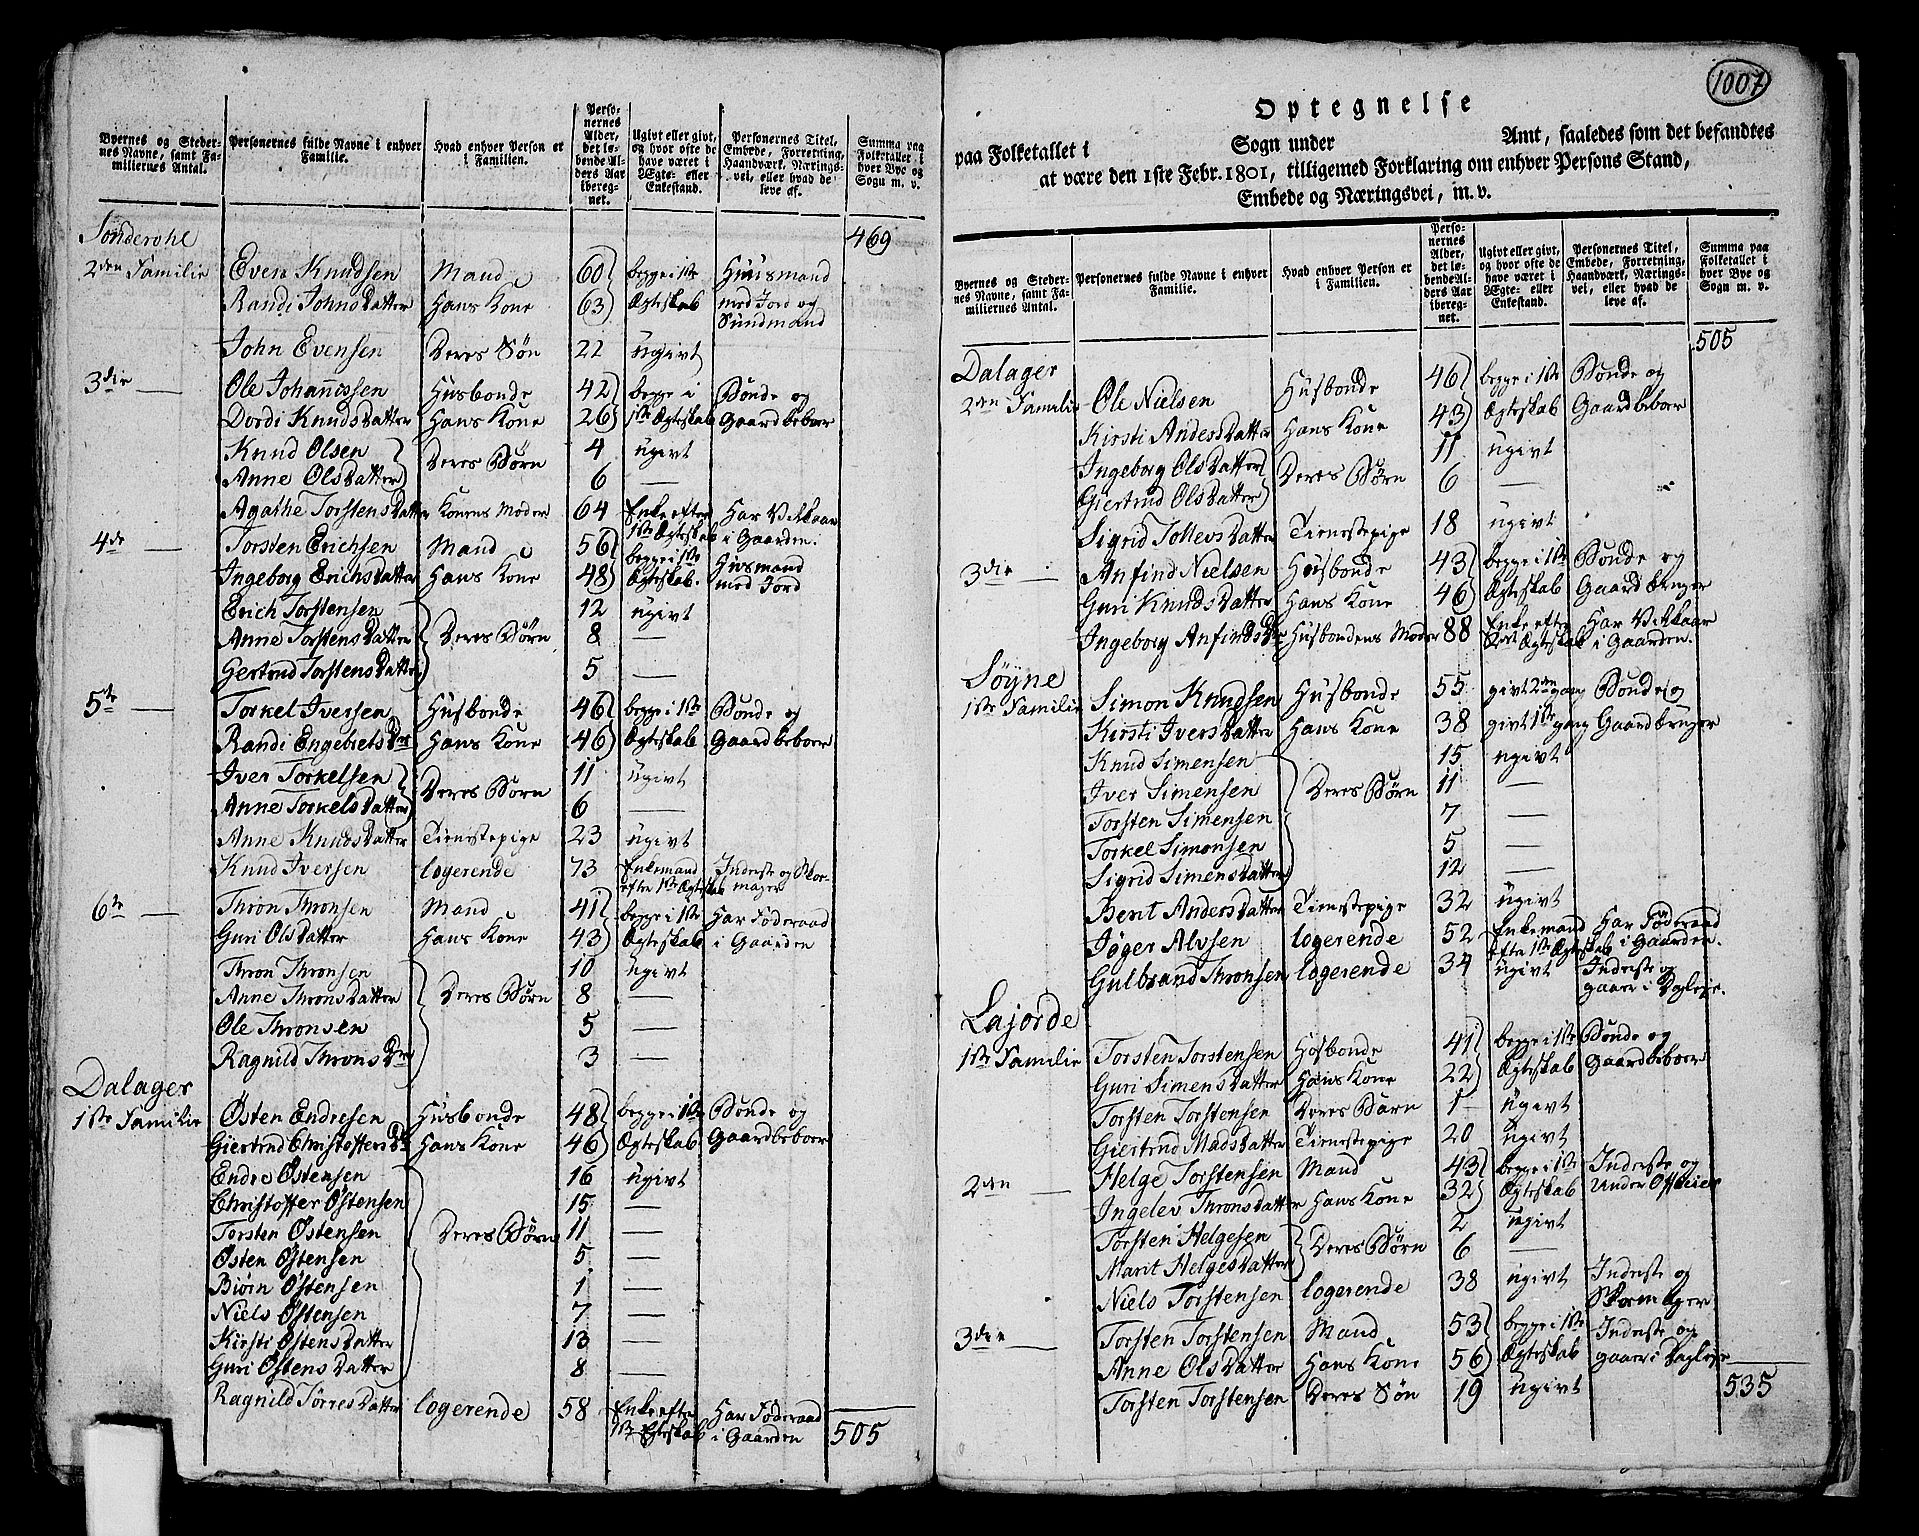 Byernes og Stedernes Navne, samt Familiernes Antal.
Personernes fulde Navne i enhver Familie.
Hvad enhver Person er i Familien.
Personernes Alder, det løbende Alders Aar iberegnet.
Ugivt eller givt, og hvor ofte de have været i Ægte- eller Enkestand.
Personernes Titel, Embede, Forretning, Haandværk, Næringsvei, eller hvad de leve af.
Summa paa Folketallet i hver Bye og Sogn m. v.
Sønderohl 469
2den Familie Even Knudsen Mand 60 begge i 1ste Huusmand
Randi JohnsDatter Hans Kone 63 Ægteskab med Jord og
Sundmand
John Evensen Deres Søn 22 ugivt
3die — Ole Johannissen Husbonde 42 begge i Bonde og
Dordi KnudsDatter Hans Kone 26 1ste Ægteskab Gaardbeboer
Knud Olsen Deres Børn 4 ugivt
Anne OlsDatter 6 —
Agathe TorstensDatter Konens Moder 64 Enke efter Har Vilkaar
1ste Ægteskab i Gaarden.
4de — Torsten Erichsen Mand 56 begge i 1ste Huusmand
Ingeborg ErichsDatter Hans Kone 48 Ægteskab. med Jord
Erich Torstensen 12 ugivt
Anne TorstensDatter Deres Børn 8 —
Gertrud TorstensDatter 5 —
5te — Torkel Iversen Husbonde 46 begge i 1ste Bonde og
Randi Engebrets Dtr Hans Kone 46 Ægteskab Gaardbeboer
Iver Torkelsen Deres Børn 11 ugivt
Anne TorkelsDatter 6 —
Anne KnudsDatter Tienestepige 23 ugivt
Knud Iversen logerende 73 Enkemand Inderste og Skor-
efter 1ste Ægteskab mager
6te — Thron Thronsen Mand 41 begge i 1ste Har Føderaad
Guri OlsDatter Hans Kone 43 Ægteskab i Gaarden
Thron Thronsen 10 ugivt
Anne ThronsDatter Deres Børn 8 —
Ole Thronsen 5 —
Ragnild Throns Dtr 3 —
Dalager
1ste Familie Østen Endresen Husbonde 48 begge i 1ste Bonde og
Giertrud Christoffers Dtr Hans Kone 46 Ægteskab Gaardbeboer
Endre Østensen 16 ugivt
Christoffer Østensen 15 —
Torsten Østensen Deres Børn 11 —
Østen Østensen 5 —
Biørn Østensen 1 —
Niels Østensen 7 —
Kirsti ØstensDatter 13 —
Guri ØstensDatter 8 —
Ragnild TørresDatter logerende 58 Enke efter Har Føderaad
1ste Ægteskab i Gaarden 505
1007
Optegnelse
paa Folketallet i Sogn under Amt, saaledes som det befandtes
at være den 1ste Febr. 1801, tilligemed Forklaring om enhver Persons Stand,
Embede og Næringsvei, m. v.
Byernes og Stedernes Navne, samt Familiernes Antal.
Personernes fulde Navne i enhver Familie.
Hvad enhver Person er i Familien.
Personernes Alder, det løbende Alders Aar iberegnet.
Ugivt eller givt, og hvor ofte de have været i Ægte- eller Enkestand.
Personernes Titel, Embede, Forretning, Haandværk, Næringsvei, eller hvad de leve af.
Summa paa Folketallet i hver Bye og Sogn m. v.
505
Dalager
2den Familie Ole Nielsen Husbonde 46 begge i 1ste Bonde og
Kirsti AndersDatter Hans Kone 43 Ægteskab Gaardbeboer
Ingeborg OlsDatter Deres Børn 11 ugivt
Giertrud OlsDatter 6 —
Sigrid TollevsDatter Tienestepige 18 ugivt
3die — Anfind Nielsen Husbonde 43 begge i 1ste Bonde og
Guri KnudsDatter Hans Kone 46 Ægteskab Gaardbruger
Ingeborg Anfinds Dtr Husbondens Moder 88 Enke efter Har Vilkaar
Ægteskab i Gaarden.
Søyne
1ste Familie Simon Knudsen Husbonde 55 givt 2den gang Bonde og
Kirsti IversDatter Hans Kone 38 givt 1ste gang Gaardbruger
Knud Simensen 15 ugivt
Iver Simensen Deres Børn 11 —
Torsten Simensen 7 —
Torkel Simonsen 5 —
Sigrid SimensDatter 12 —
Berit AndersDatter Tienestepige 32 ugivt
Jøger Alvsen logerende 52 Enkemand Har Føderaad
efter 1ste Ægteskab i Gaarden.
Gulbrand Thronsen logerende 34 ugivt Inderste og
gaaer i Dagleje.
Lajorde
1ste Familie Torsten Torstensen Hosbonde 41 begge i 1ste Bonde og
Guri SimensDatter Hans Kone 22 Ægteskab Gaardbeboer
Torsten Torstensen Deres Barn 1 ugivt
Giertrud MadsDatter Tienestepige 20 ugivt
2den — Helge Torstensen Mand 43 begge i 1ste Inderste og
Ingelev ThronsDatter Hans Kone 32 Ægteskab Under Officier
Torsten Helgesen Deres Børn 2 ugivt
Marit HelgesDatter 6 —
Niels Torstensen logerende 38 ugivt Inderste og
Skomager
3die — Torsten Torstensen Mand 53 begge i 1ste Inderste og
Anne OlsDatter Hans Kone 56 Ægteskab gaaer i Dagleje
Torsten Torstensen Deres Søn 19 ugivt 535